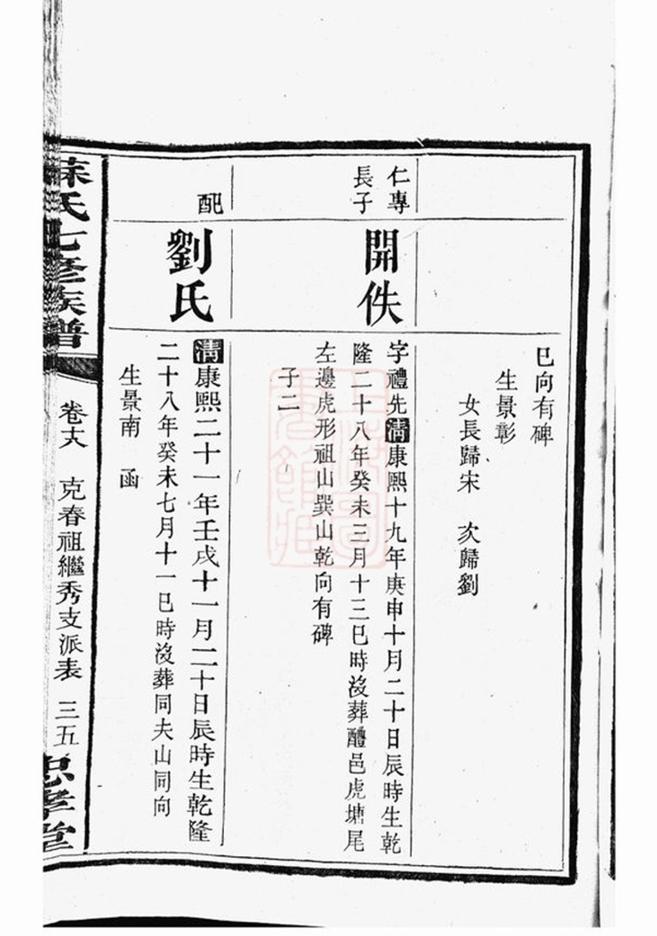 巳向有碑
生景彰
女長歸宋　次歸劉
仁專
長子
開佚
字禮先清康熙十九年庚申十月二十日辰時生乾
隆二十八年癸未三月十三巳時沒葬醴邑虎塘尾
左邊虎形祖山巽山乾向有碑
子二
配
劉氏
清康熙二十一年壬戌十一月二十日辰時生乾隆
二十八年癸未七月十一巳時沒葬同夫山同向
生景南　函
氏七修族譜
克春祖繼秀支派表
三五
忠孝堂